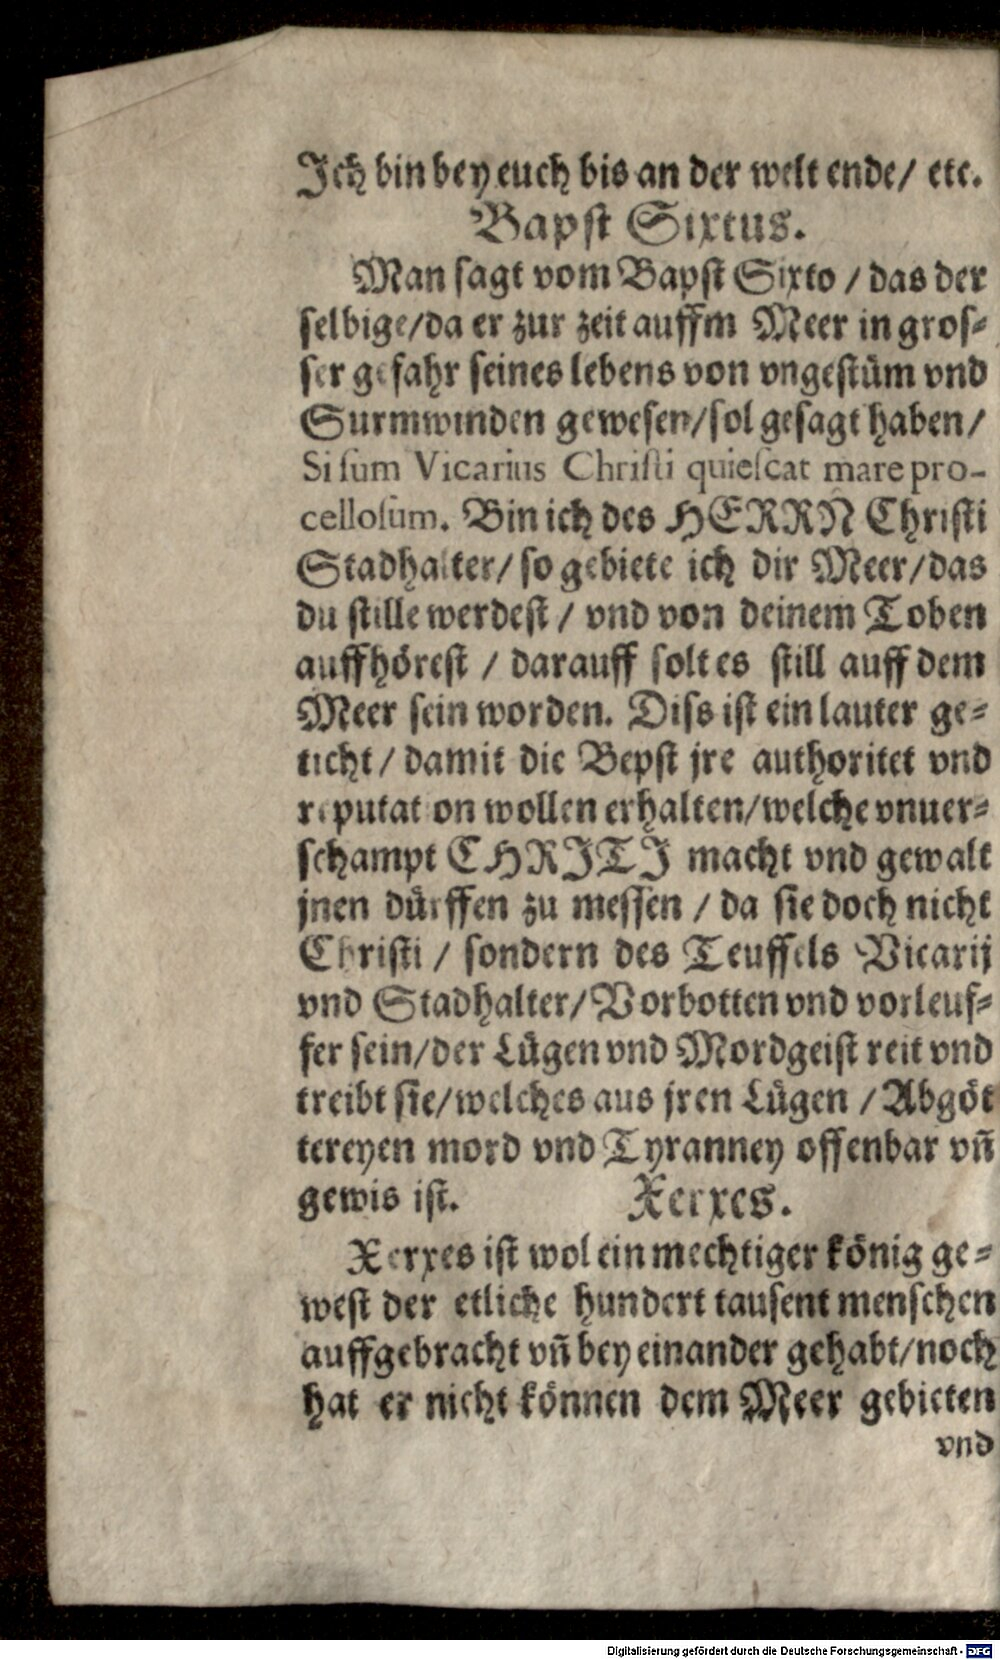 Ich bin bey euch bis an der welt ende/ etc.
Bapst Sixtus.
Man sagt vom Bapst Sixto / das der
selbige/da er zur zeit auffm Meer in gros-
ser gefahr seines lebens von vngestüm vnd
Surmwinden gewesen/sol gesagt haben/
Si sum Vicarius Christi quiescat mare pro-
cellosum. Bin ich des HERRN Christi
Stadhalter/ so gebiete ich dir Meer/das
du stille werdest / vnd von deinem Toben
auffhörest / darauff solt es still auff dem
Meer sein worden. Diss ist ein lauter ge-
ticht / damit die Bepst jre authoritet vnd
reputation wollen erhalten/welche vnuer-
schampt CHRISTI macht vnd gewalt
jnen dürffen zu messen / da sie doch nicht
Christi / sondern des Teuffels Vicarij
vnd Stadhalter/Vorbotten vnd vorleuf-
fer sein/der Lügen vnd Mordgeist reit vnd
treibt sie/welches aus jren Lügen /Abgöt
tereyen mord vnd Tyranney offenbar vñ
gewis ist. Xerxes.
Xerxes ist wol ein mechtiger könig ge-
west der etliche hundert tausent menschen
auffgebracht vñ bey einander gehabt/noch
hat er nicht können dem Meer gebieten
vnd
Digitalisierung gefördert durch die Deutsche Forschungsgemeinschaft - DFG